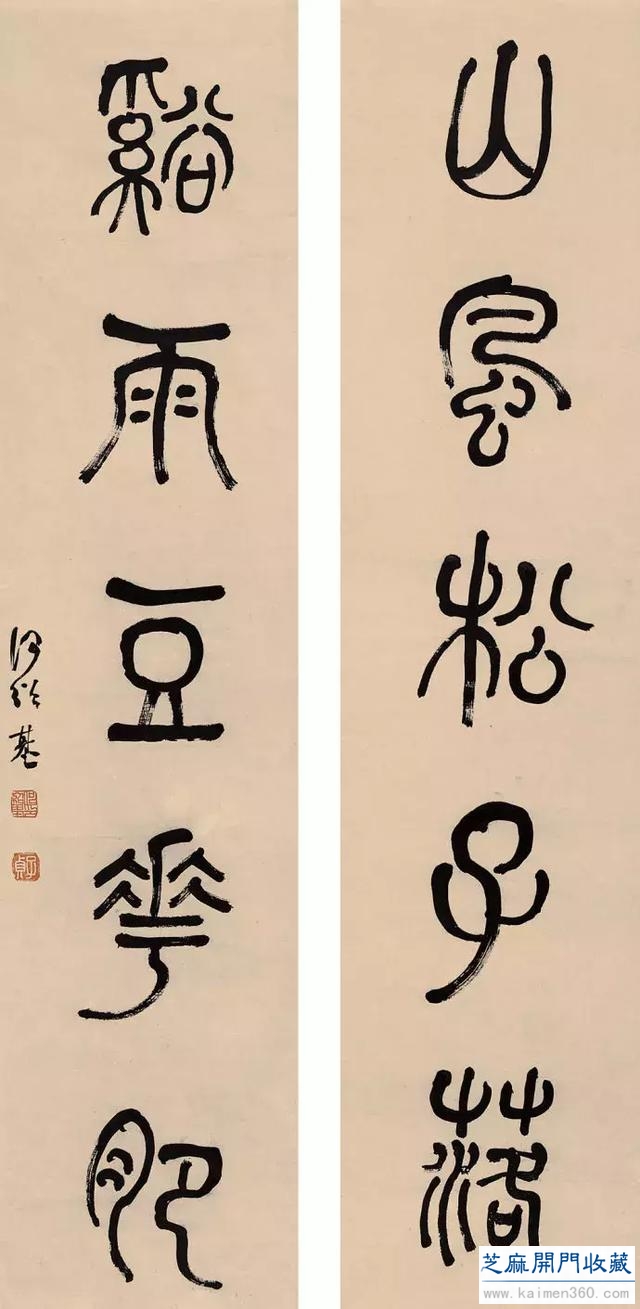 山風松子落
谿雨豆花肥
何紹基
子貞
芝麻開門收藏
www.kaimen360.com